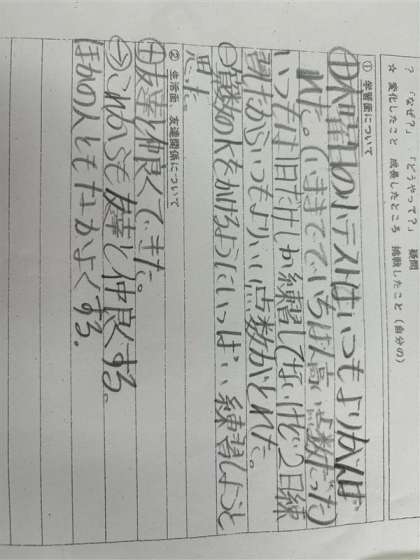 ? 「なぜ?」 「どうやって?」 疑問
☆ 変化したこと 成長したところ 挑戦したこと (自分の)
① 学習面について
⊕ の小テストはいつもよりがんば
れた。(いままででいちばん高い点数だった)
いつもは1日だけしか練習してないけど2日練
習したからいつもよりいい点数がとれた。
⊖ ようにいっぱい練習しようと
思た。
② 生活面、友達関係について
⊕友達と仲良くできた。
→これからも友達と仲良くする。
ほかの人ともなかよくする。